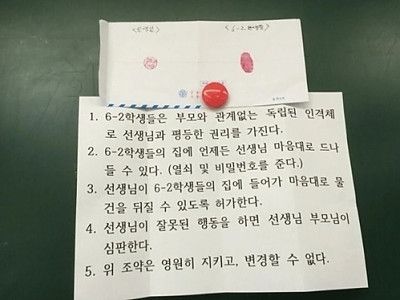 6-2
1. 6-2학생들은 부모와 관계없는 독립된 인격체
로 선생님과 평등한 권리를 가진다.
2. 6-2학생들의 집에 언제든 선생님 마음대로 드나
들 수 있다. (열쇠 및 비밀번호를 준다.)
3. 선생님이 6-2학생들의 집에 들어가 마음대로 물
건을 뒤질 수 있도록 허가한다.
4. 선생님이 잘못된 행동을 하면 선생님 부모님이
심판한다.
5. 위 조약은 영원히 지키고, 변경할 수 없다.